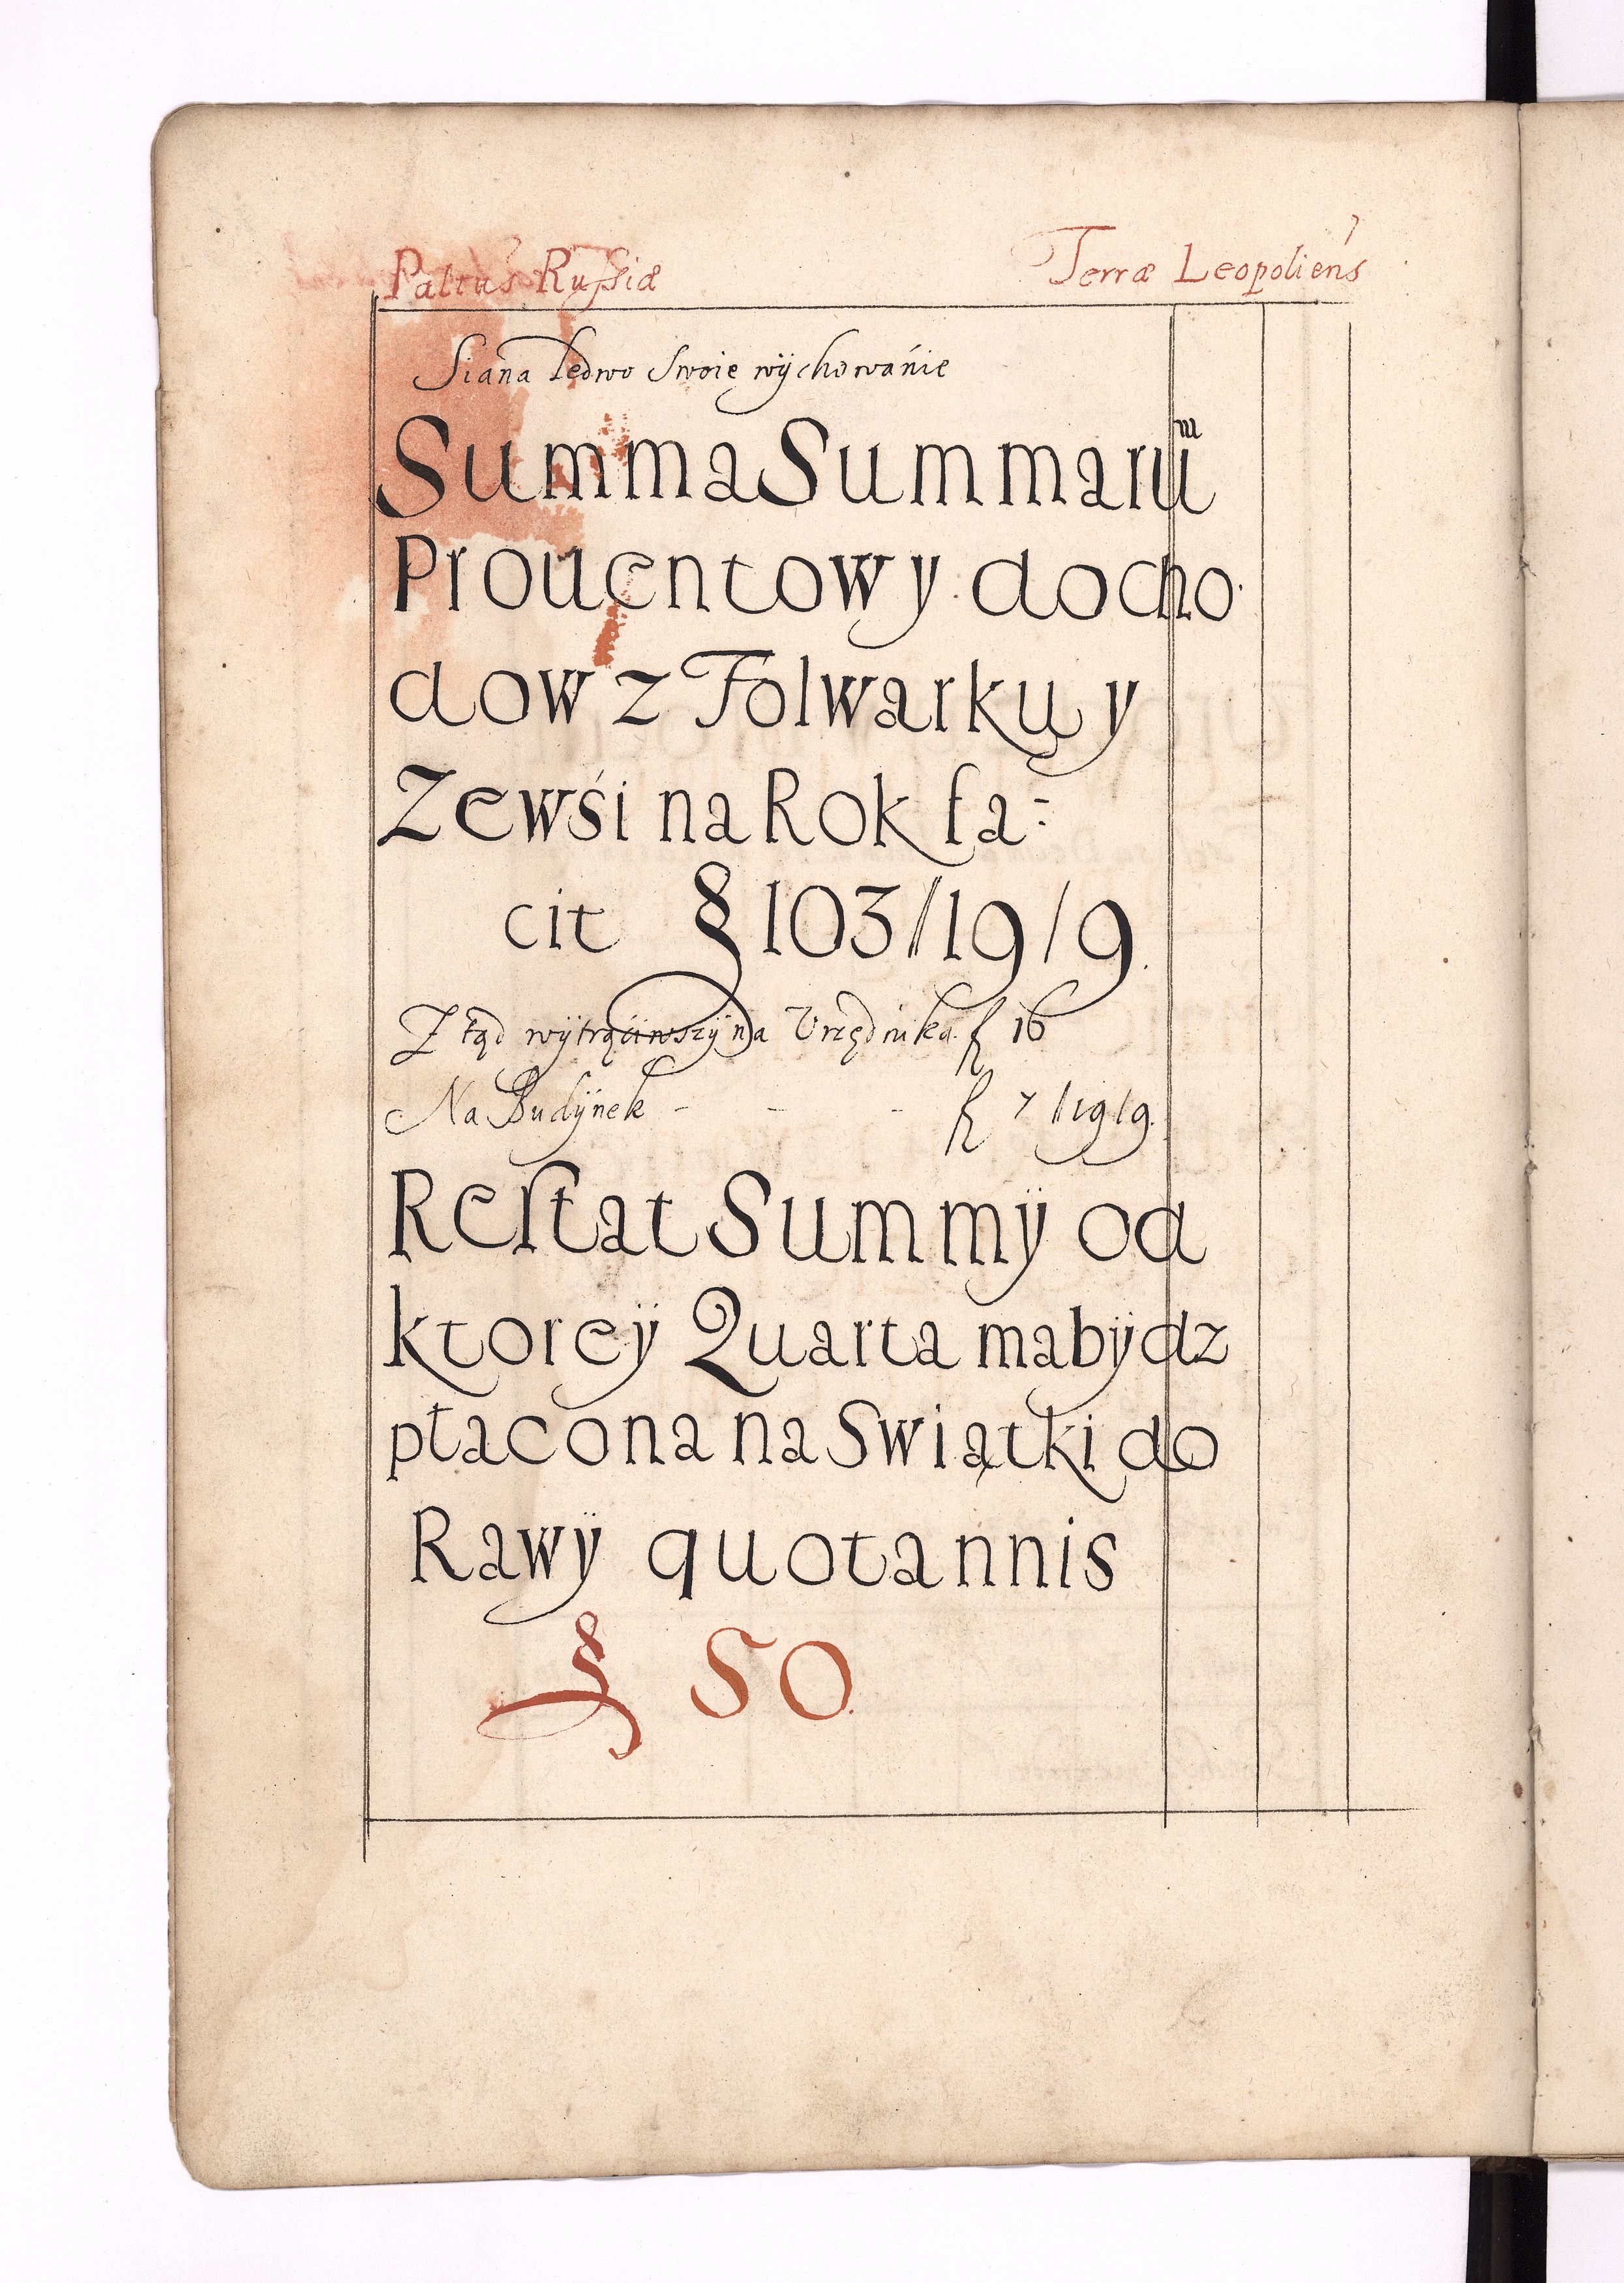 Paltus Russiæ Terræ Leopoliens
Siana ledwo swoie wÿchowánie
Summa Summarum
Prouentow y docho
dow z Folwarku y
Zewśi na Rok fa:
cit § 103//19/9.
Z tąd wÿtrąciwszÿ na Vrzędnika f 16
Na Budÿnek - - - f 7//19/9.
Restat Summÿ od
ktoreÿ Quarta ma bÿdz
płacona na Swiątki do
Rawÿ quotannis
§ 80.